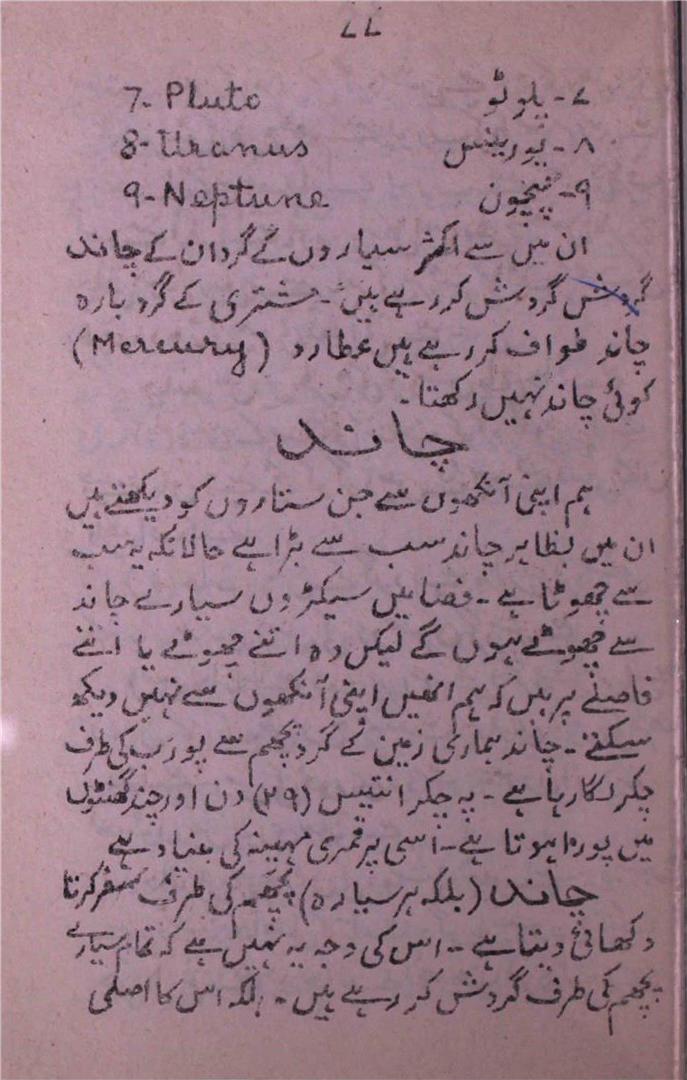 ۷۷
7- Pluto ۷- پلوٹو
8- Uranus ۸- یورینس
9- Neptune ۹- نیپچون
ان میں سے اکثر سیاروں کے گرد ان کے چاند
گردش گردش کر رہے ہیں۔ مشتری کے گرد بارہ
چاند طواف کر رہے ہیں عطارد (Mercury)
کوئی چاند نہیں رکھتا۔
چاند
ہم اپنی آنکھوں سے جن ستاروں کو دیکھتے ہیں
ان میں بظاہر چاند سب سے بڑا ہے حالانکہ یہ سب
سے چھوٹا ہے۔ فضا میں سیکڑوں سیارے چاند
سے چھوٹے ہوں گے لیکن وہ اتنے چھوٹے یا اتنے
فاصلے پر ہیں کہ ہم انھیں اپنی آنکھوں سے نہیں دیکھ
سکتے۔ چاند ہماری زمین کے گرد پچھم سے پورب کی طرف
چکر لگا رہا ہے۔ یہ چکر انتیس (۲۹) دن اور چند گھنٹوں
میں پورا ہوتا ہے۔ اسی پر قمری مہینہ کی بنیاد ہے
چاند (بلکہ ہر سیارہ) پچھم کی طرف سفر کرتا
دکھائی دیتا ہے۔ اس کی وجہ یہ نہیں ہے کہ تمام سیارے
پچھم کی طرف گردش کر رہے ہیں۔ بلکہ اس کا اصلی